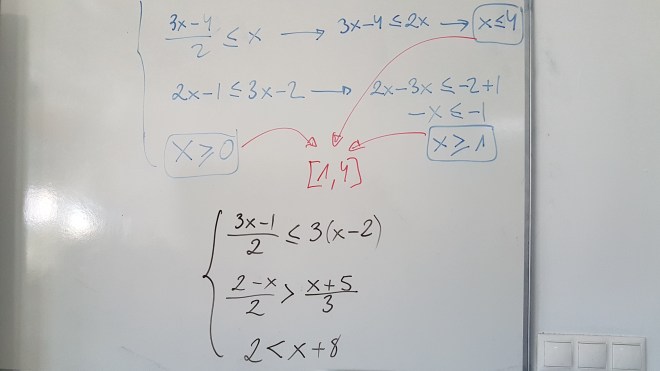 (3x-4)/2 ≤ x → 3x-4 ≤ 2x → x ≤ 4
2x-1 ≤ 3x-2 → 2x-3x ≤ -2+1
-x ≤ -1
x ≥ 0 x ≥ 1
[1,4]
(3x-1)/2 ≤ 3(x-2)
(2-x)/2 > (x+5)/3
2 < x+8